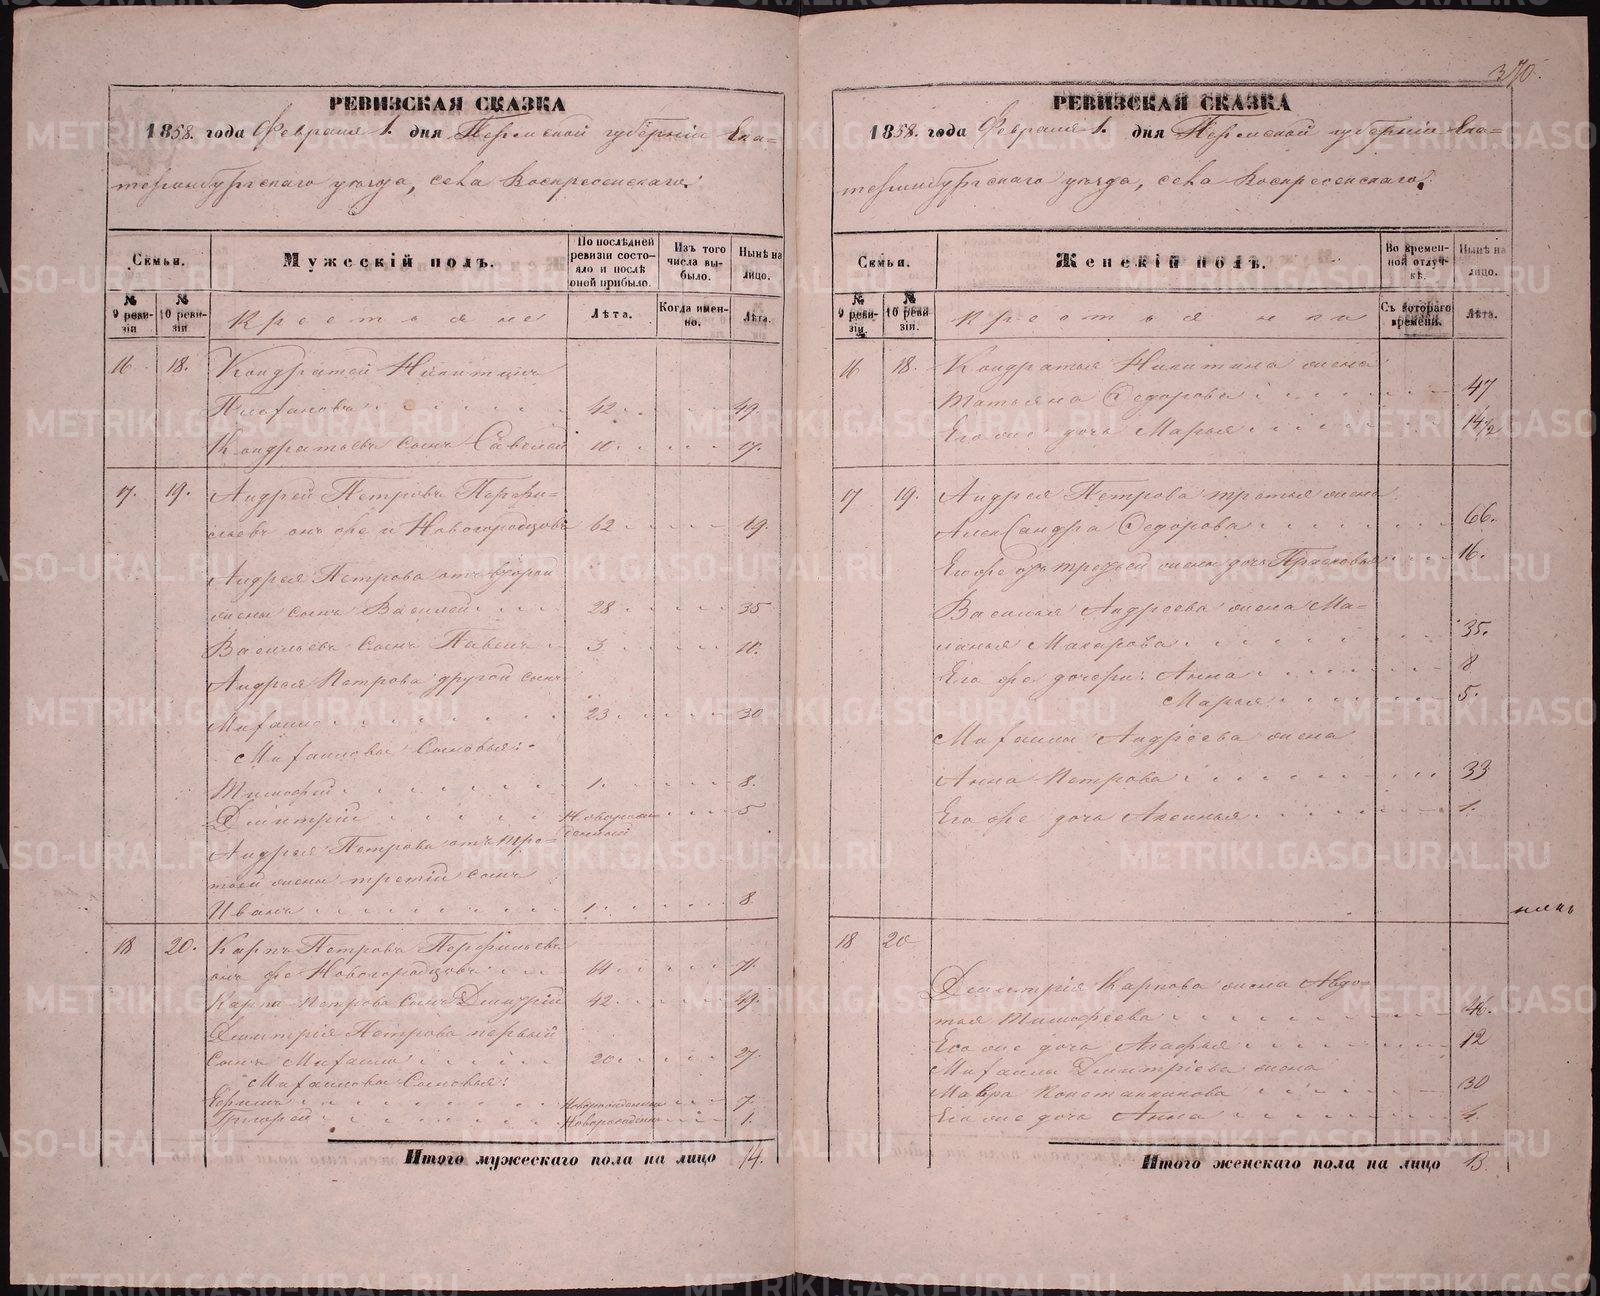 370.
РЕВИЗСКАЯ СКАЗКА
1858. года Февраля 1. дня Пермской губернiи Ека=
теринбургскаго уезда, села Воскресенскаго.
Семьи.
Мужескiй полъ.
По послѣдней ревизiи состояло и послѣ оной прибыло.
Изъ того числа выбыло.
Нынѣ на лицо.
№ 9 ревизiи
№ 10 ревизiи
Крестьяне
Лѣта.
Когда именно.
Лѣта.
16 18. Кондратей Никитинъ
42 49.
Кондратьевъ сынъ Савелей 10. 17.
17. 19. Андрей Петровъ Перфи=
льевъ онъ же и Новогородцовъ 62 19.
Андрея Петрова отъ второй
жены сынъ Василей 28 35
Васильевъ сынъ Павелъ 3 10.
Андрея Петрова другой сынъ
Михаило 23 30
Михаиловы сыновья:
Тимофей 1. 8.
Дмитрiй Новорожденный 5
Андрея Петрова отъ тре=
тьей жены третiй сынъ
Иванъ 1 8
18 20. Карпъ Петровъ Перфильевъ
онъ же Новогородцовъ 64 71.
Карпа Петрова сынъ Дмитрiй 42 49.
Дмитрiя Петрова первый
сынъ Михаило 20 27.
Михаиловы сыновья:
Ефимъ Новорожденный 7.
Григорей Новорожденный 1.
Итого мужескаго пола на лицо 14.
РЕВИЗСКАЯ СКАЗКА
1858. года Февраля 1. дня Пермской губернiи Ека=
теринбургскаго уезда, села Воскресенскаго.
Семьи.
Женскiй полъ.
Во временной отлучкѣ.
Нынѣ на лицо.
№ 9 ревизiи
№ 10 ревизiи.
Крестьянки
Съ котораго времени.
Лѣта.
16 18. Кондратья Никитина жена
Татьяна Федорова 47
Его же дочь Марья 14 1/2
17 19. Андрея Петрова третья жена
Александра Федорова 66.
Его же отъ третьей жены дочь Прасковья 16.
Василья Андреева жена Ма=
ланья Макарова 35.
Его же дочери: Анна 8
Марья 5.
Михаила Андреева жена
Анна Петрова 33
Его же дочь Аксинья 1.
18 20
Дмитрiя Карпова жена Авдо=
тья Тимофеева 46.
Его же дочь Агафья 12
Михаила Дмитрiева жена
Мавра Константинова 30
Его же дочь Анна 4.
Итого женскаго пола на лицо 13.